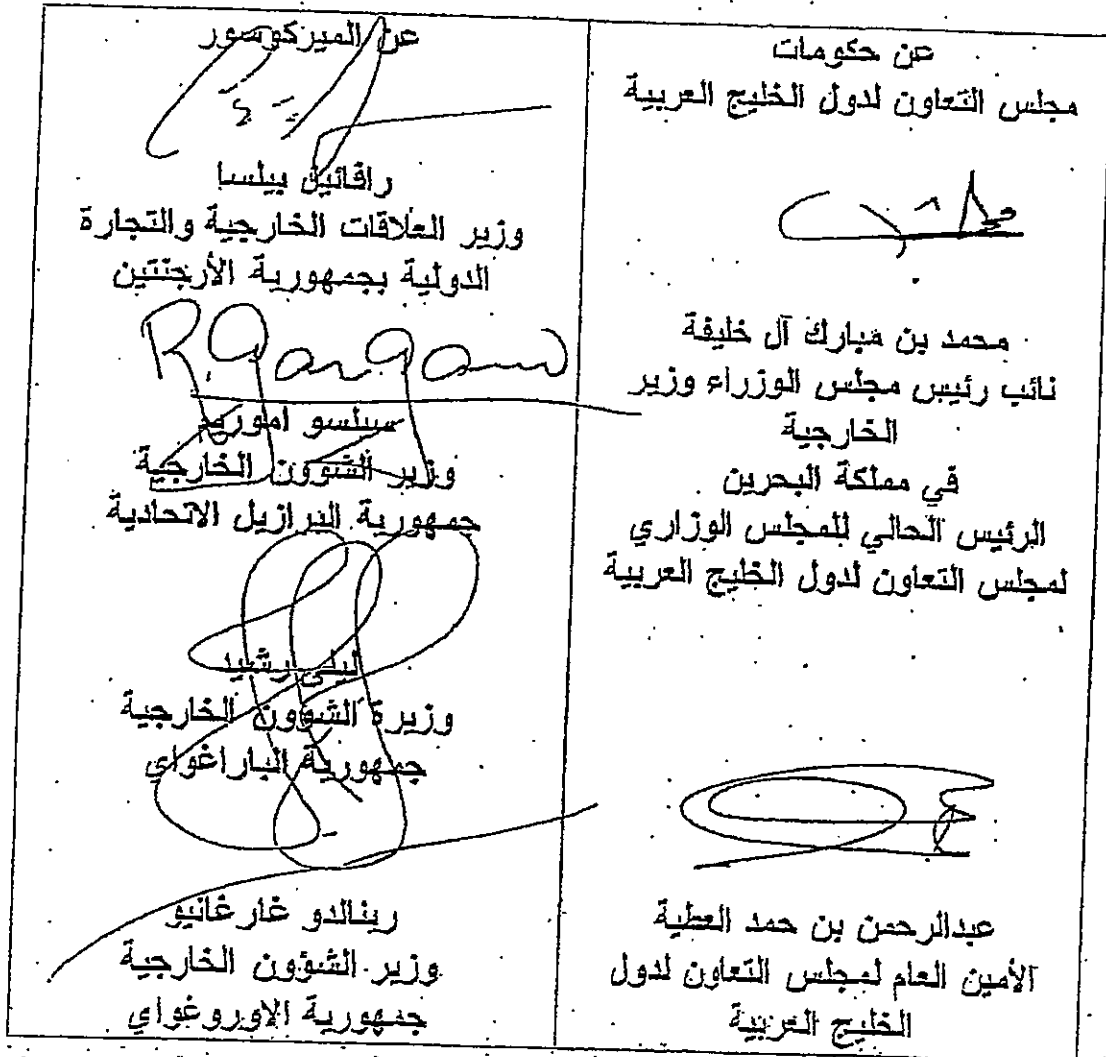 عن حكومات
مجلس التعاون لدول الخليج العربية
محمد بن مبارك آل خليفة
نائب رئيس مجلس الوزراء وزير
الخارجية
في مملكة البحرين
الرئيس الحالي للمجلس الوزاري
لمجلس التعاون لدول الخليج العربية
عبدالرحمن بن حمد العطية
الأمين العام لمجلس التعاون لدول
الخليج العربية
عن الميزكوسور
رافائيل بيلسا
وزير العلاقات الخارجية والتجارة
الدولية بجمهورية الأرجنتين
سيلسو اموريم
وزير الشؤون الخارجية
جمهورية البرازيل الاتحادية
ليلى رشيد
وزيرة الشؤون الخارجية
جمهورية الباراغواي
رينالدو غارغانيو
وزير الشؤون الخارجية
جمهورية الاوروغواي